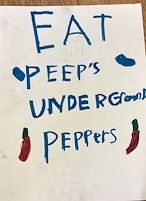 EAT
PEEP'S
UNDERGrounD
PEPPers